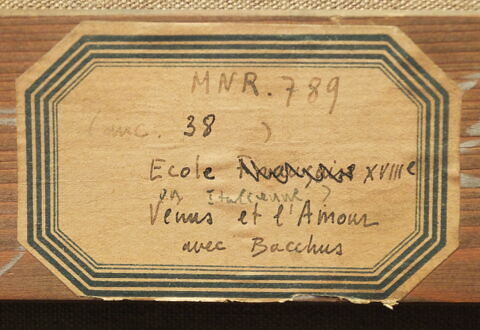 MNR. 789
(inc. 38 )
Ecole Française XVIIIe
ou Italienne ?
Venus et l'Amour
avec Bacchus